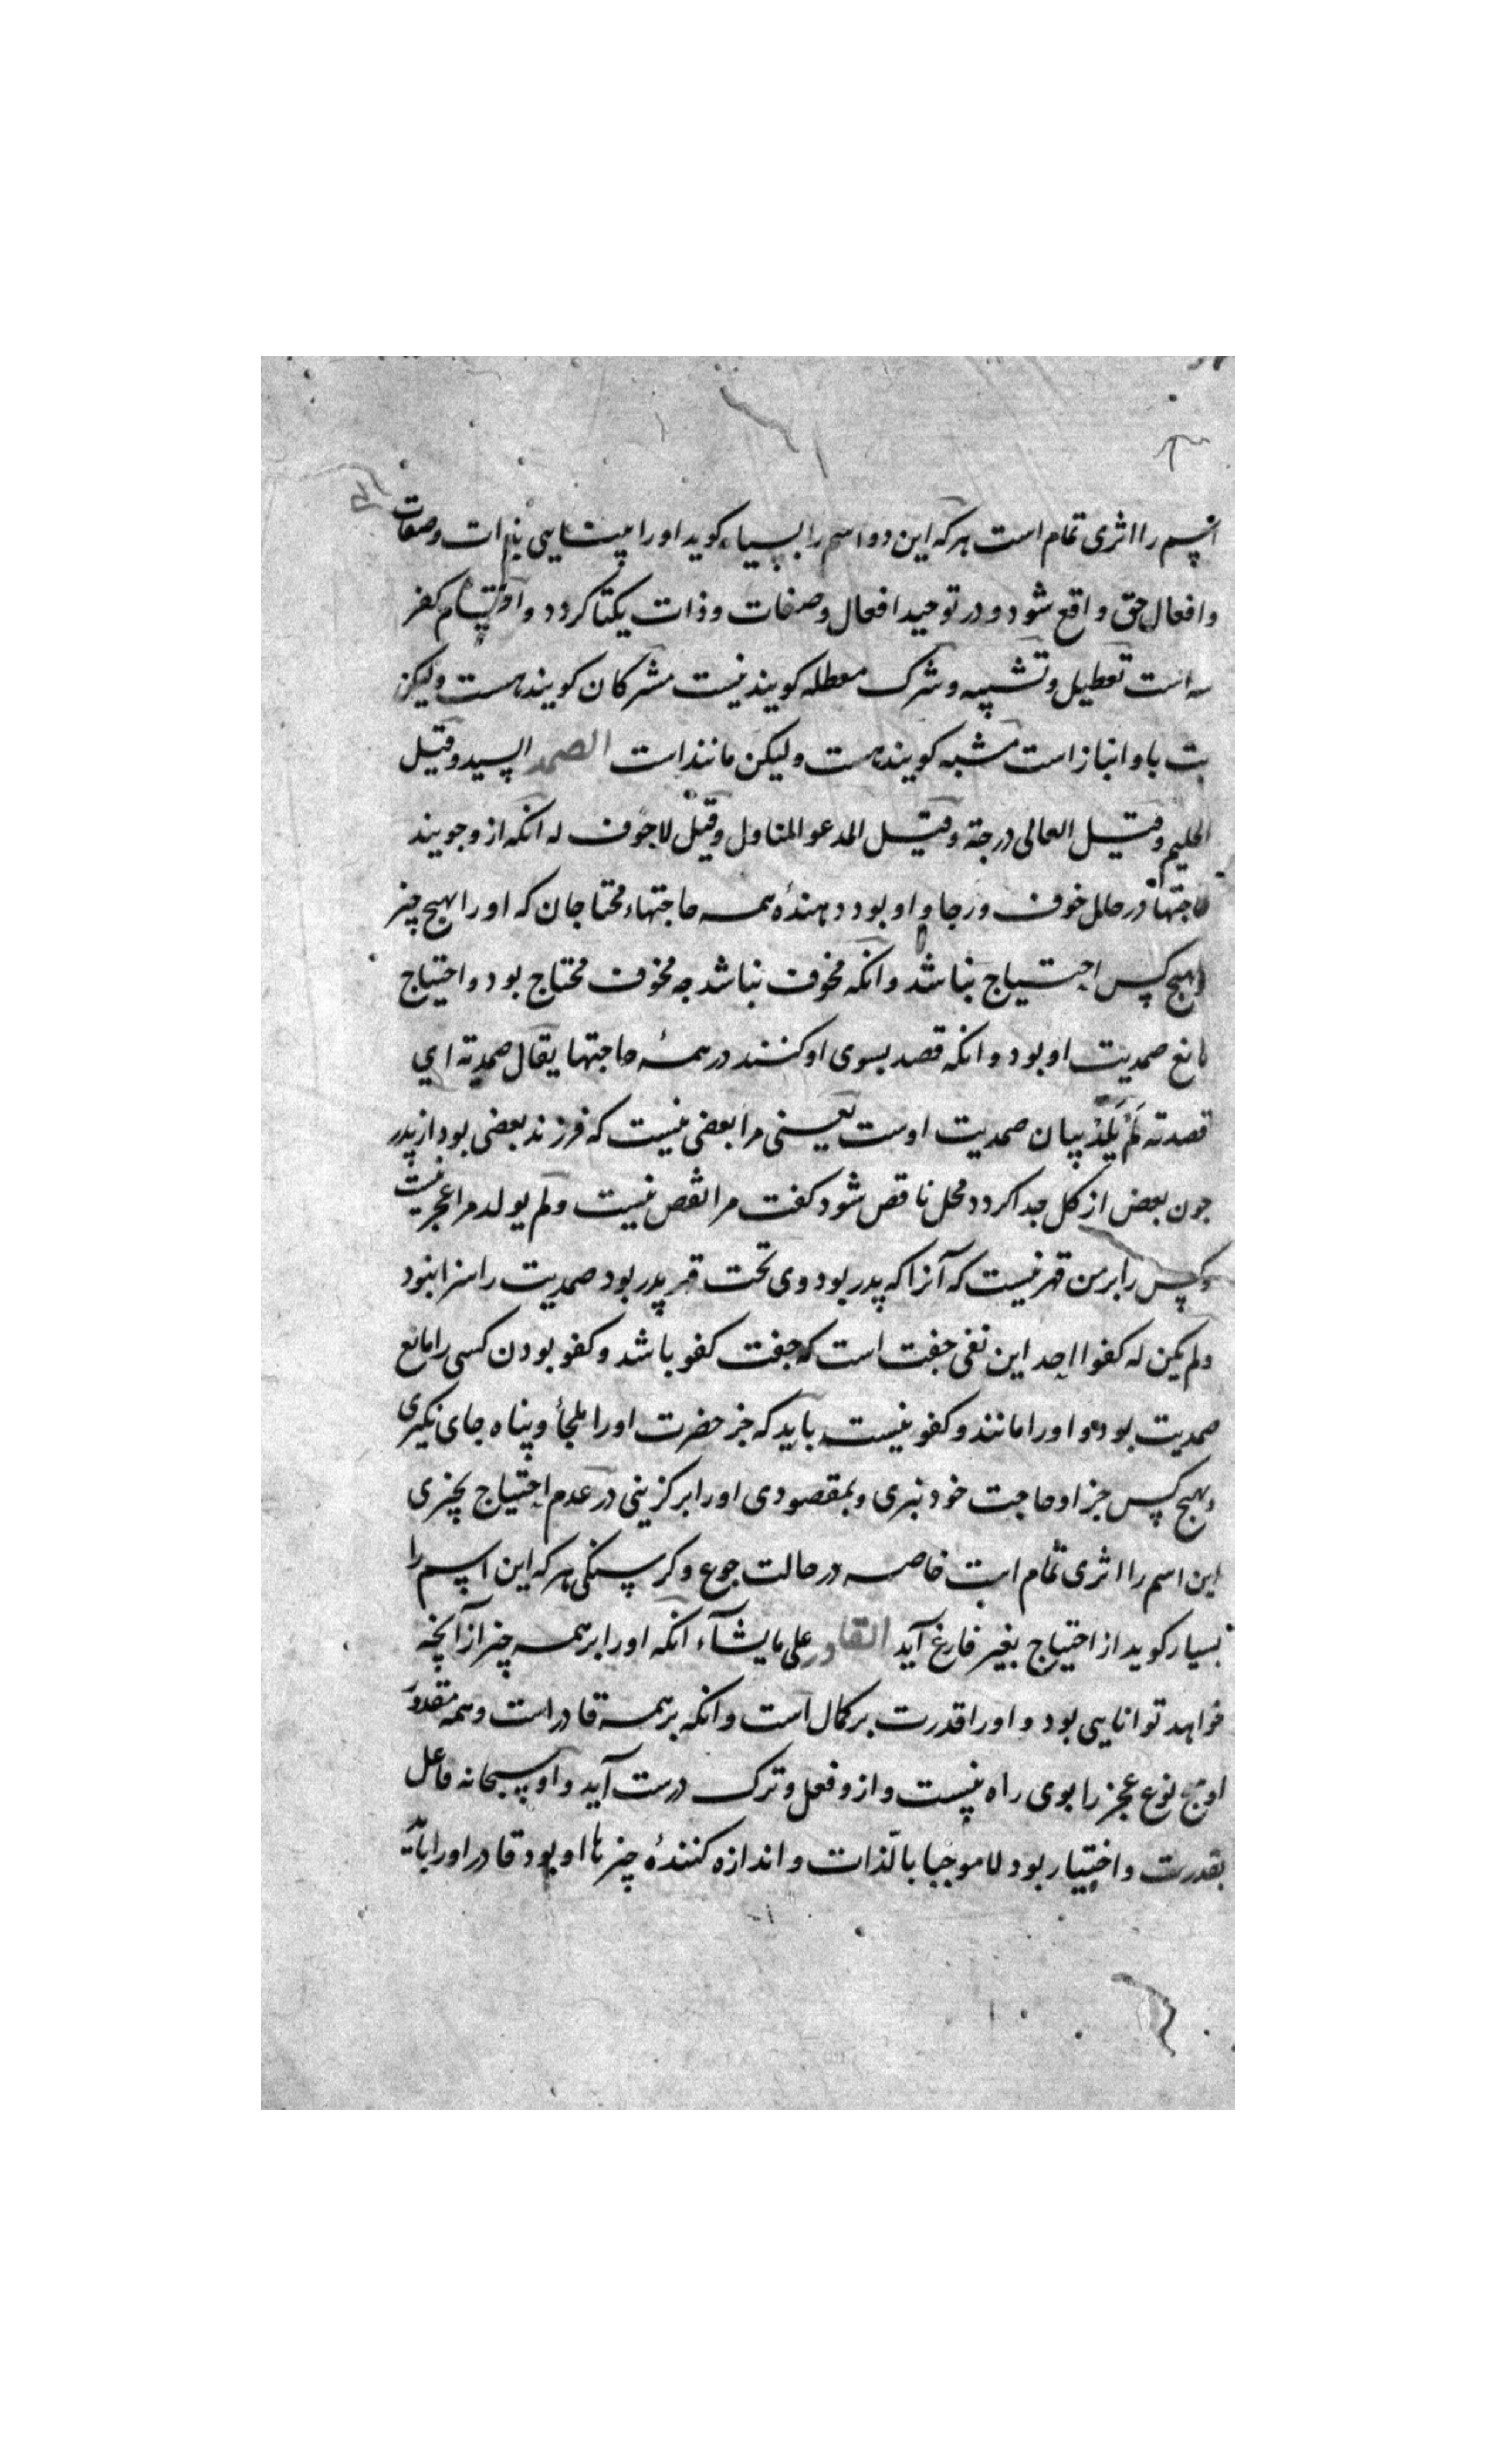 اسم را اثری تمام است هرکه این دو اسم را بسیار کوید او را یپتایی بذات وصفات
وافعال حق واقع شود و در توحید افعال وصفات وذات یکتا کردد واقسام کفر
سه است تعطیل وتشبیه وشرک معطله کویند نیست مشرکان کویند هست ولیکن
بت با او انباز است مشبه کویند هست ولیکن مانند است الصمد السید وقیل
الحلیم وقیل العالی درجته وقیل المدعو المناول وقیل لاجوف له انکه ازو جویند
حاجتها در حال خوف ورجا و او بود دهندهٔ همه حاجتهاء محتاجان که او را بهیچ چیز
وبهیچ کس احتیاج نباشد وانکه مخوف نباشد چه مخوف محتاج بود واحتیاج
مانع صمدیت او بود وانکه قصد بسوی او کنند در همهٔ حاجتها یقال صمدته ای
قصدته لَمْ یَلِدْ بیان صمدیت اوست یعنی مرا بعضی نیست که فرزند بعضی بود از پدر
جون بعض از کل جدا کردد محل ناقص شود کفت مرا نقص نیست ولم یولد مرا عجز نیست
وکس را بر من قهر نیست که آنرا که پدر بود وی تحت قهر پدر بود صمدیت را سزا نبود
ولم یکن له کفوا احد این نفی جفت است که جفت کفو باشد وکفو بودن کسی را مانع
صمدیت بود و او را مانند وکفو نیست باید که جز حضرت او را ملجأ وپناه جای نکیری
وبهیچ کس جز او حاجت خود نبری وبمقصودی او را برکزینی در عدم احتیاج بچیزی
این اسم را اثری تمام است خاصه در حالت جوع وکرسنکی هرکه این اسم را
بسیار کوید از احتیاج بغیر فارغ آید القادر علی مایشآء انکه او را بر همه چیز از آنچه
خواهد توانایی بود و او را قدرت بر کمال است وانکه بر همه قادر است وهمه مقدور
او هیچ نوع عجز را بوی راه نیست وازو فعل وترک درست آید واو سبحانه فاعل
بقدرت واختیار بود لا موجبا بالذات واندازه کنندهٔ چیزها او بود قادر او را باید